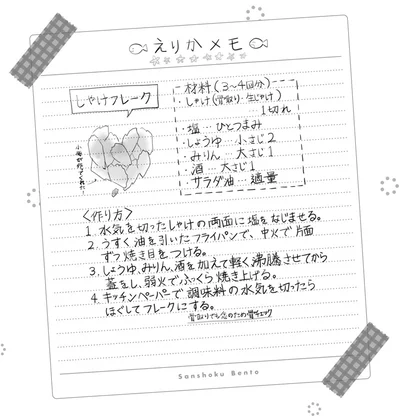 えりかメモ
しゃけフレーク
-材料(3〜4回分)
・しゃけ(骨取り・生じゃけ)
1切れ
・塩…ひとつまみ
・しょうゆ…小さじ2
・みりん…大さじ1
・酒…大さじ1
・サラダ油…適量
<作り方>
1. 水気を切ったしゃけの両面に塩をなじませる。
2. うすく油を引いたフライパンで、中火で片面
ずつ焼き目をつける。
3. しょうゆ、みりん、酒を加えて軽く沸騰させてから
蓋をし、弱火でふっくら焼き上げる。
4. キッチンペーパーで調味料の水気を切ったら
ほぐしてフレークにする。
骨取りでも念のため骨チェック
Sanshoku Bento